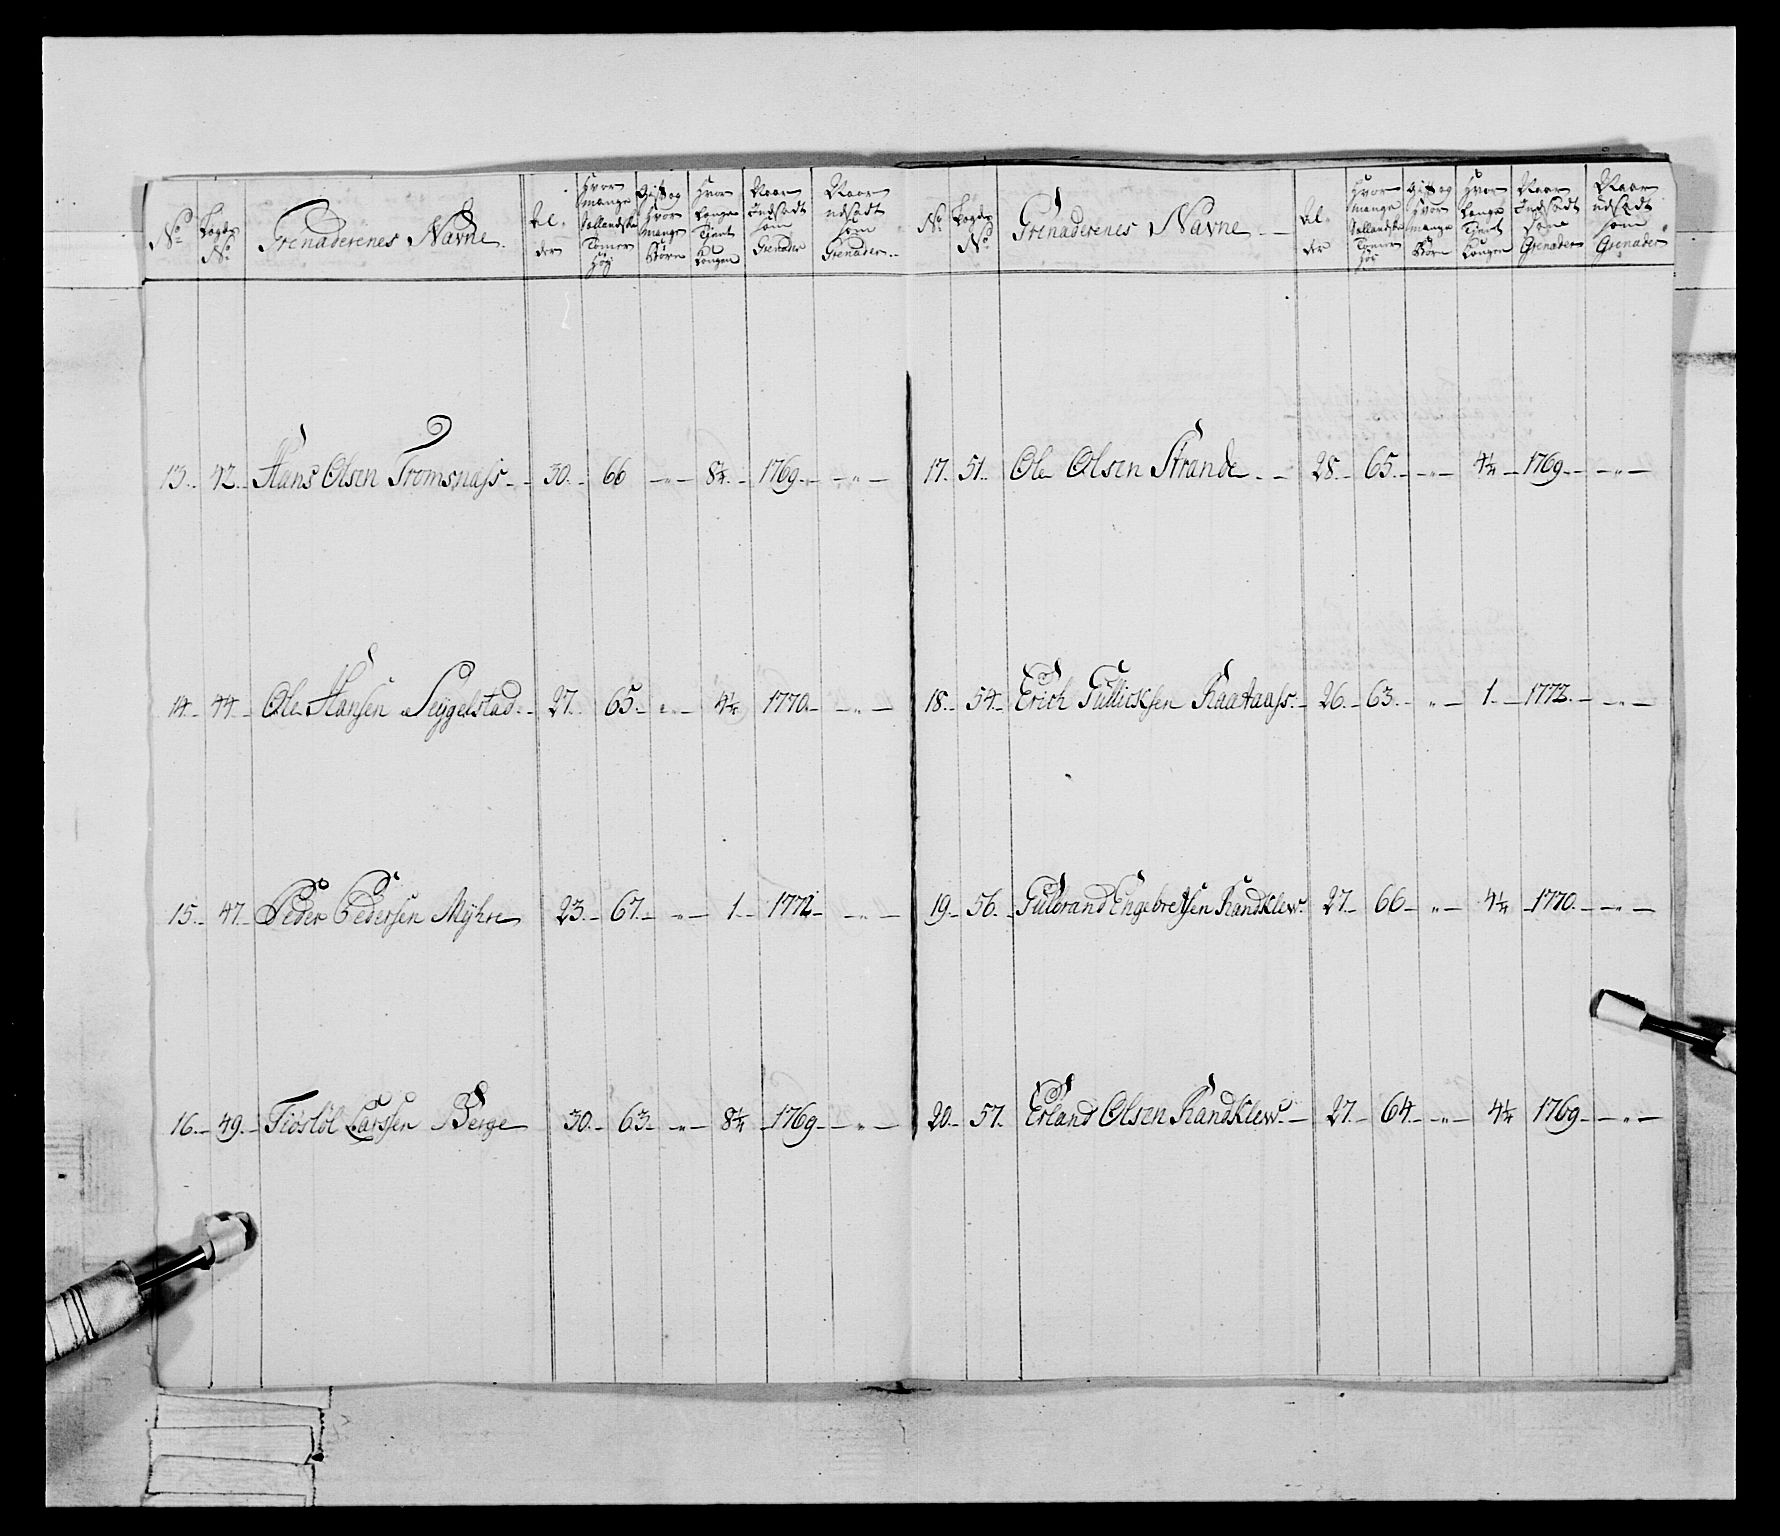 No Lægds No Grenaderenes Navne. Al- der Hvor mange Hollandske Tomer høy Gift og Hvor mange Børn Hvor Længe Tient Kongen Naar Indsadt som Grenader Naar udsadt som Grenader
13. 42. Hans Olsen Tromsnæss 30. 66 — " — 8¼. 1769. — " —
14. 44. Ole Hansen Seygelstad. 27. 65. — " — 4¼ 1770. — " —
15. 47. Peder Pedersen Mÿhre 23. 67. — " — 1. 1772. — " —
16. 49. Tiøsløl Larssen Berge 30. 63. — " — 8¼ 1769. — " —
No Lægds No Grenaderenes Navne Al- der Hvor mange Hollandske Tomer høy Gift og Hvor mange Børn Hvor Længe Tient Kongen Naar Indsadt som Grenader Naar udsadt som Grenader
17. 51. Ole Olsen Strande 28. 65. — " — 4¼ 1769. — " —
18. 54. Erich Gullicksen Raaaaass. 26. 63. — " — 1. 1772. — " —
19. 56. Gulbrand Engebretsen Randklew. 27. 66 — " — 4¼ 1770. — " —
20. 57. Erland Olsen Randklew. 27. 64. — " — 4¼ 1769. — " —